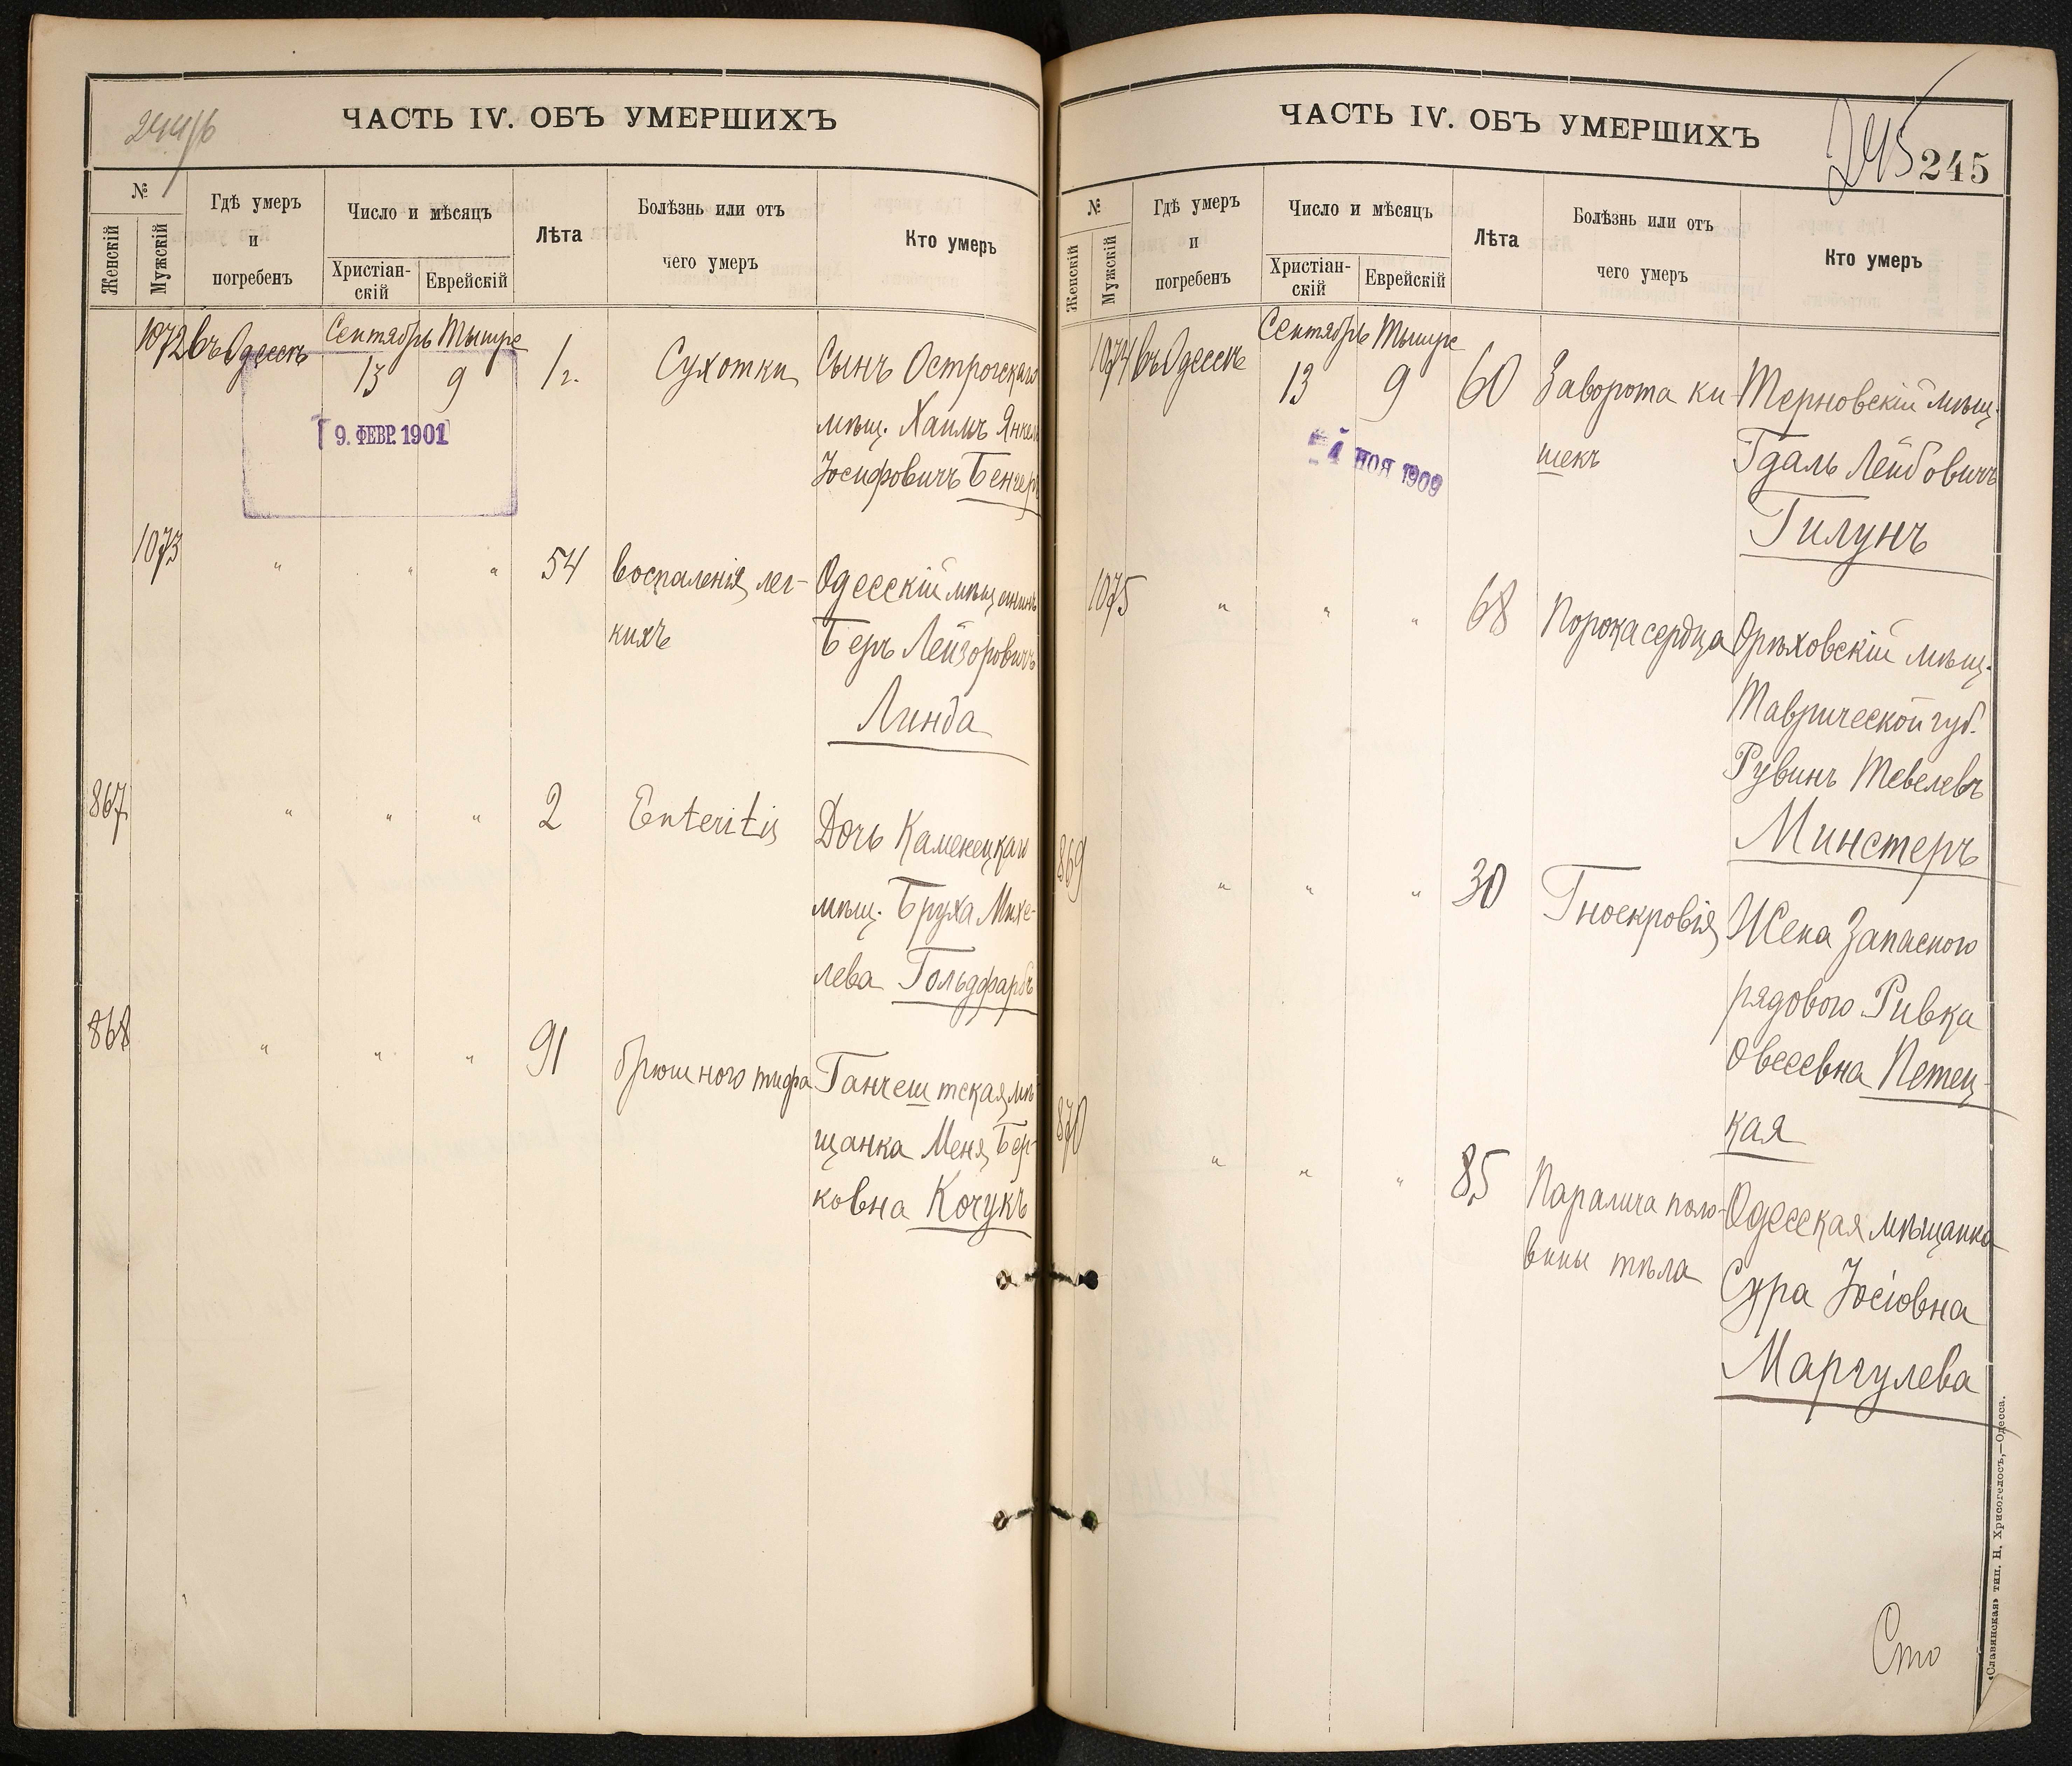 244/б
ЧАСТЬ IV. ОБЪ УМЕРШИХЪ
№
Женскій
Мужскій
Гдѣ умеръ
и
погребенъ
Число и мѣсяцъ
Христіан-
скій
Еврейскій
Лѣта
Болѣзнь или отъ
чего умеръ
Кто умеръ
1072 въ Одессѣ Сентябрь 13 Тышре 9 1 г. Сухотки Сынъ Острогскаго
мѣщ. Хаимъ Янкель
Іосифовичъ Бенчеръ
9. ФЕВР. 1901
1073 " " " 54 воспаленія лег- Одесскій мѣщанинъ
кихъ Беръ Лейзоровичъ
Линда
867 " " " 2 Enteritis Дочь Каменецкаго
мѣщ. Бруха Михе-
лева Гольдфарбъ
868 " " " 91 брюшного тифа Ганчештская мѣ-
щанка Меня Бер-
ковна Кочукъ
ЧАСТЬ IV. ОБЪ УМЕРШИХЪ
245
245
№
Женскій
Мужскій
Гдѣ умеръ
и
погребенъ
Число и мѣсяцъ
Христіан-
скій
Еврейскій
Лѣта
Болѣзнь или отъ
чего умеръ
Кто умеръ
1074 въ Одессѣ Сентябрь 13 Тышре 9 60 Заворота ки- Терновскій мѣщ.
шекъ Гдаль Лейбовичъ
Гилунъ
4 НОЯ 1909
1075 " " " 68 Порока сердца Орѣховскій мѣщ.
Таврической губ.
Рувинъ Тевелевъ
Минстеръ
869 " " " 30 Гноекровія Жена Запасного
рядового Ривка
Овсеевна Петец-
кая
870 " " " 85 Паралича поло- Одесская мѣщанка
вины тѣла Сура Іосіовна
Маргулева
Сто
«Славянская» тип. Н. Хрисогелосъ,—Одесса.